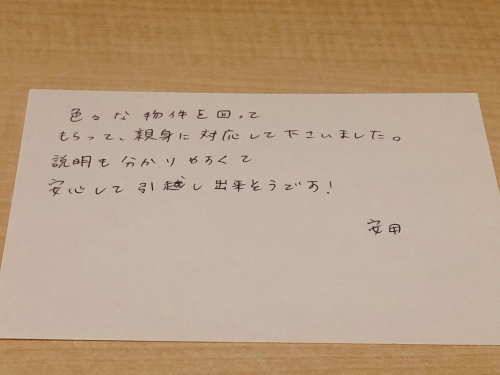 色々な物件を回って
もらって、親身に対応して下さいました。
説明も分かりやすくて
安心して引越し出来そうです!
安田